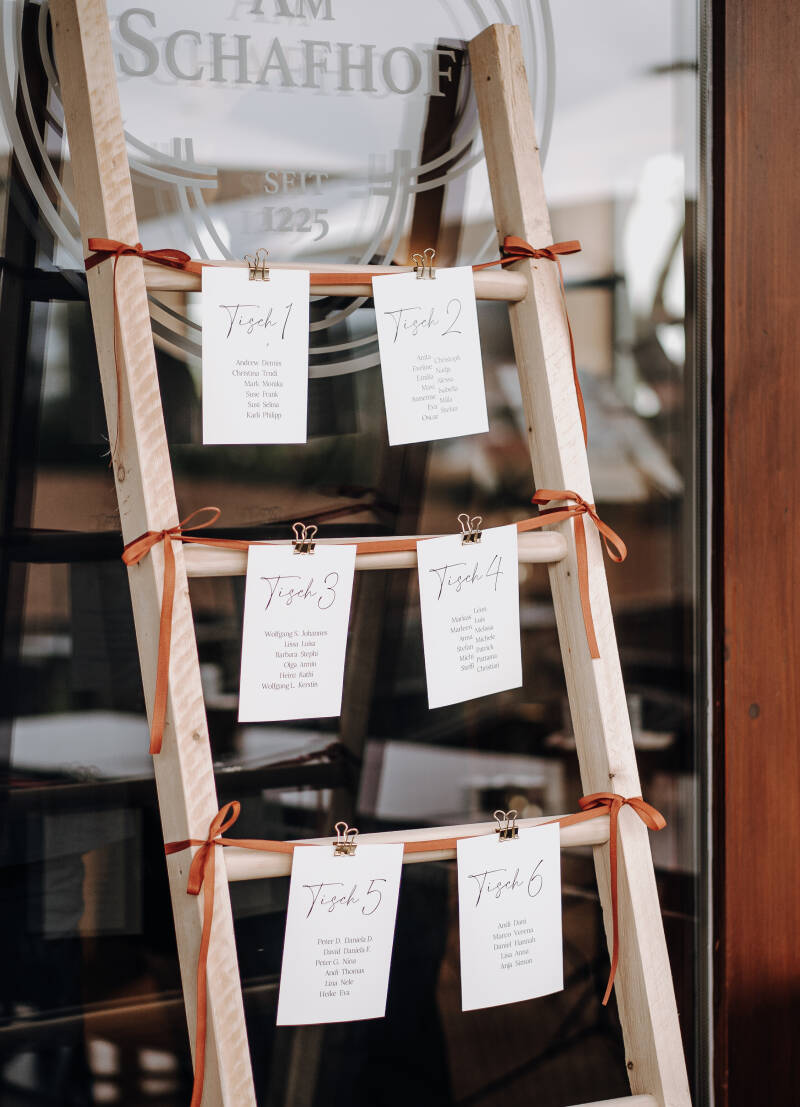 AM
SCHAFHOF
SEIT
1225
Tisch 1
Andrew Dennis
Christina Trudi
Mark Monika
Susie Frank
Susi Selina
Karli Philipp
Tisch 2
Anita Christoph
Eveline Nadja
Emilia Alessia
Maxi Isabella
Annerose Mila
Eva Stefan
Oscar
Tisch 3
Wolfgang S. Johannes
Lissa Luisa
Barbara Stephi
Olga Armin
Heinz Kathi
Wolfgang L. Kerstin
Tisch 4
Markus Leon
Marleen Luis
Anna Melissa
Stefan Michele
Michi Patrick
Steffi Pattama
Christian
Tisch 5
Peter D. Daniela D.
David Daniela F.
Peter G. Nina
Andi Thomas
Lina Nele
Heike Eva
Tisch 6
Andi Dani
Marco Verena
Daniel Hannah
Lisa Anna
Anja Simon